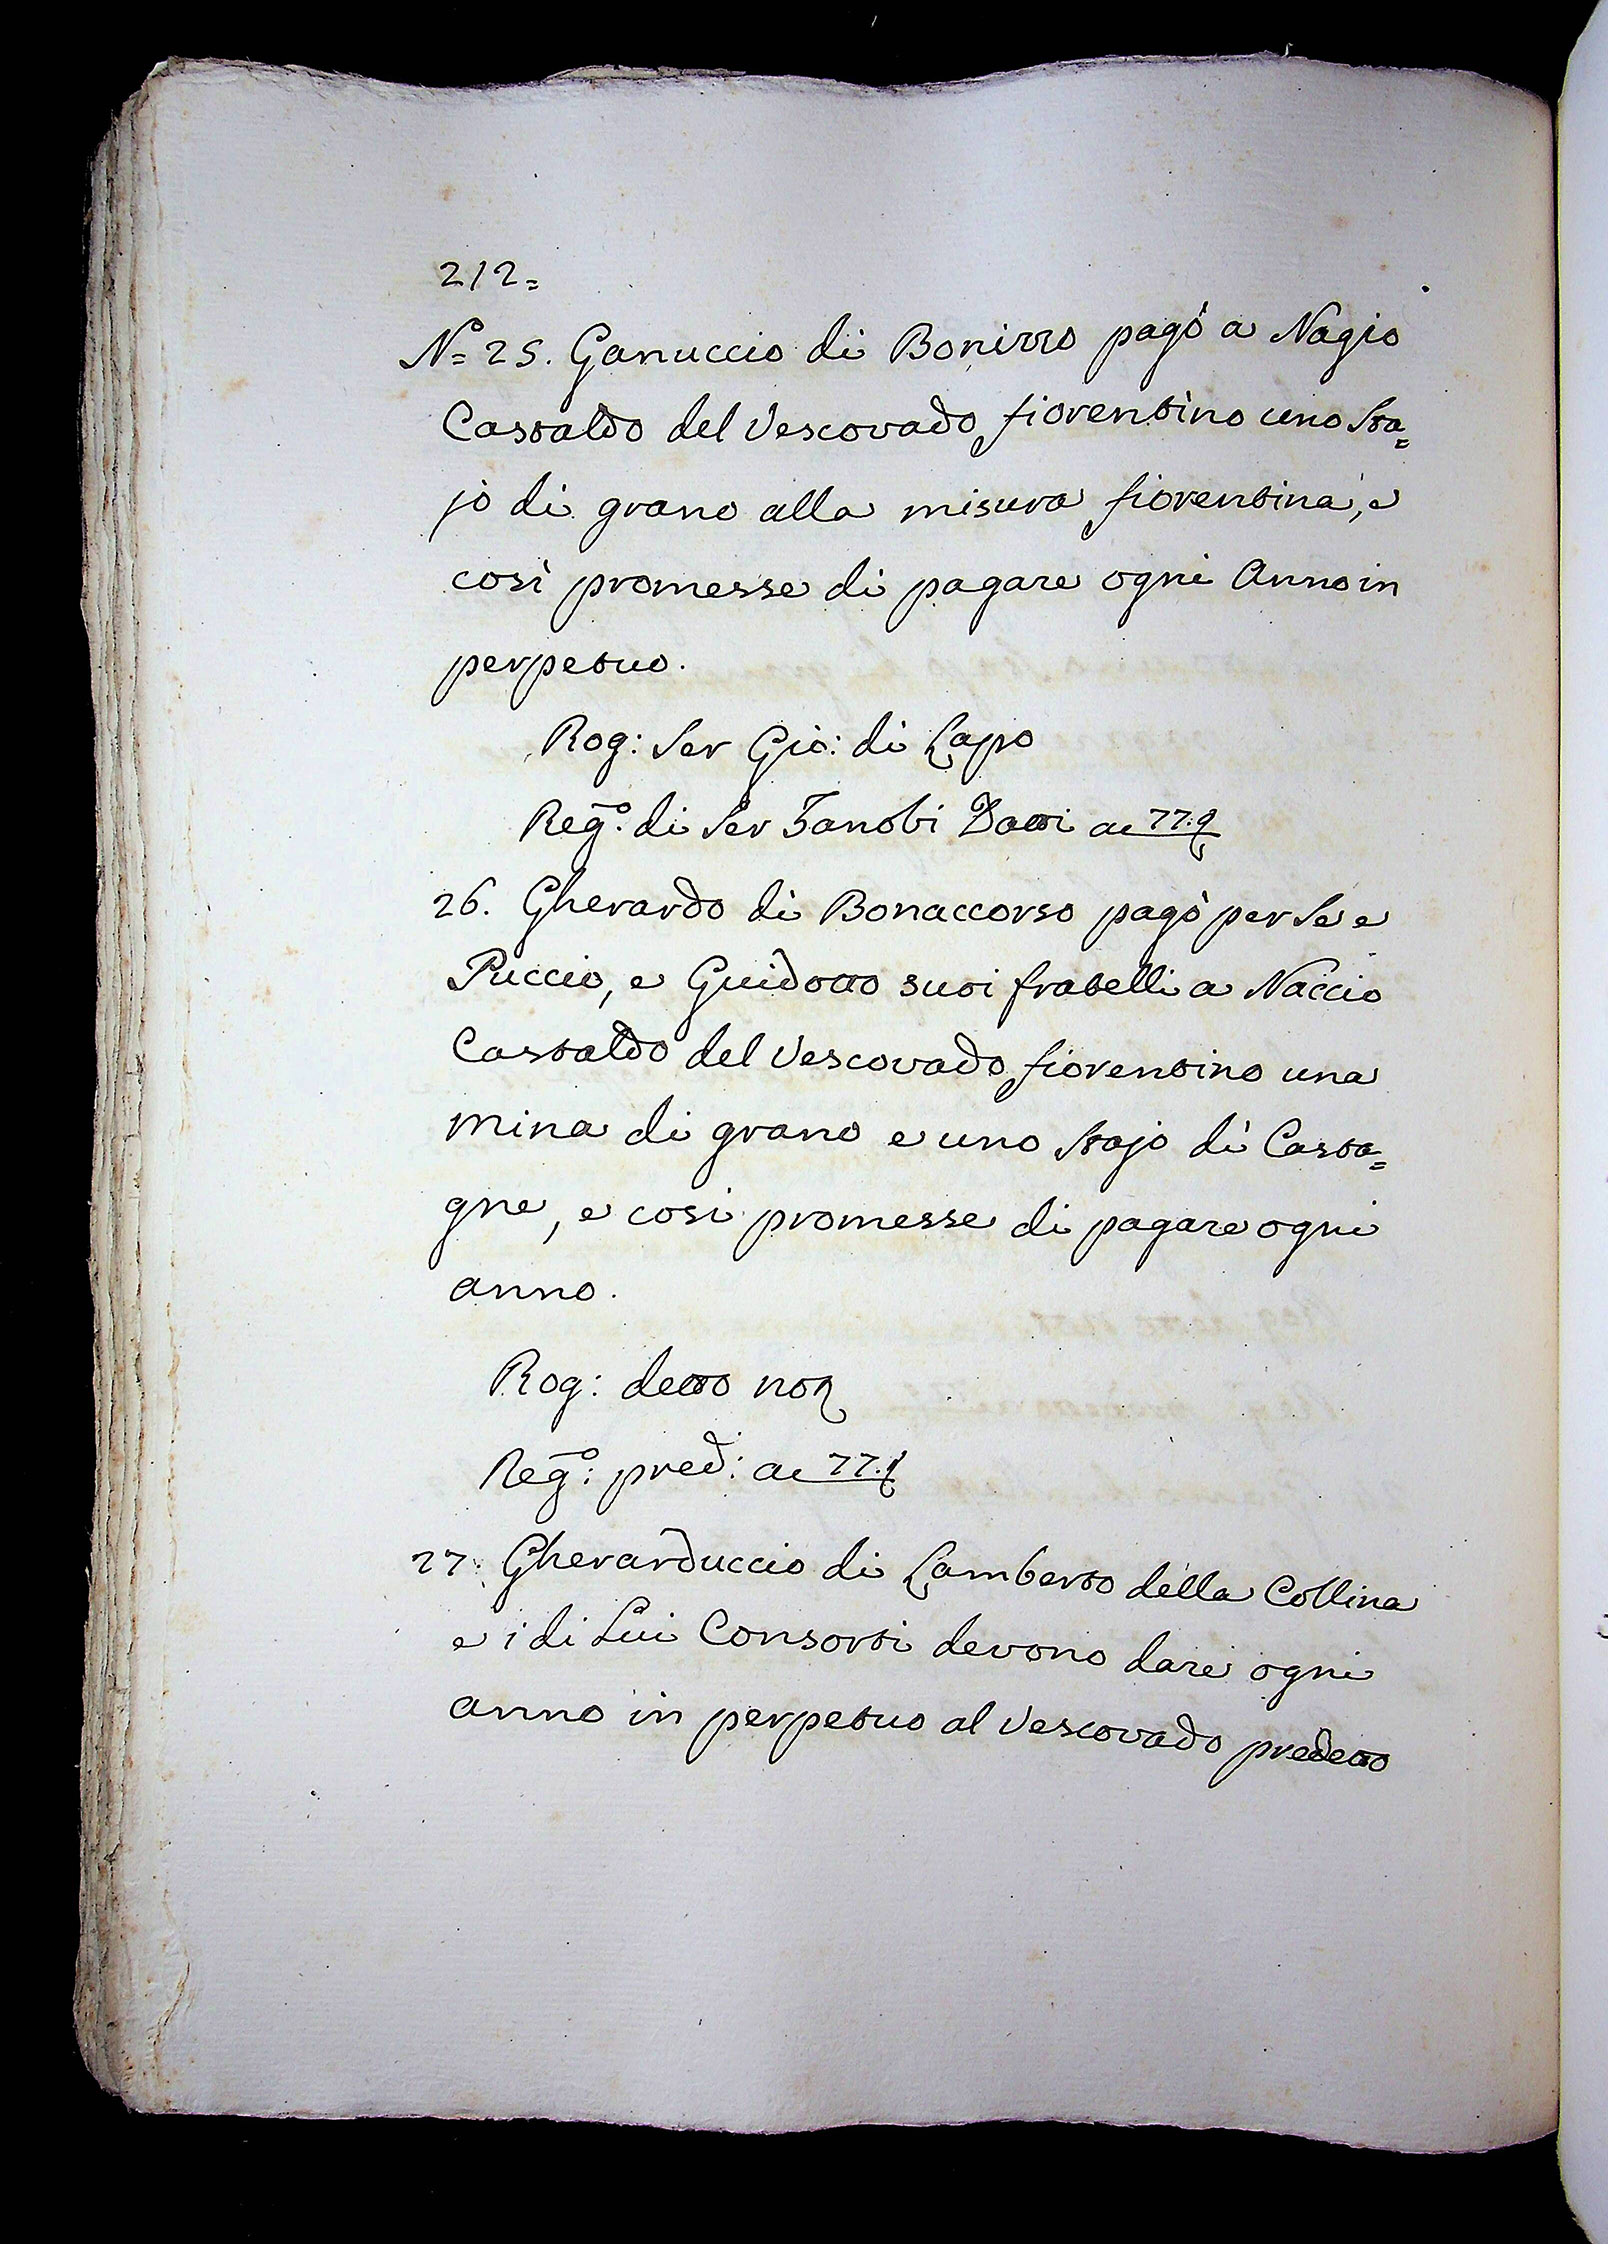 212=
Nº= 25. Ganuccio di Bonizzo pagò a Nagio
Castaldo del Vescovado fiorentino uno Sta=
jo di grano alla misura fiorentina, e
così promesse di pagare ogni Anno in
perpetuo.
Rog: Ser Gio: di Lapo
Regº: di Ser Zanobi a 77.
26. Gherardo di Bonaccorso pagò per Se e
Puccio, e Guidotto suoi fratelli a Naccio
Castaldo del Vescovado fiorentino una
mina di grano e uno Stajo di Casta=
gne, e così promesse di pagare ogni
anno.
Rog: detto not
Regº: pred: a 77.
27. Gherarduccio di Lamberto della Collina
e i di Lui Consorti devono dare ogni
anno in perpetuo al Vescovado predetto